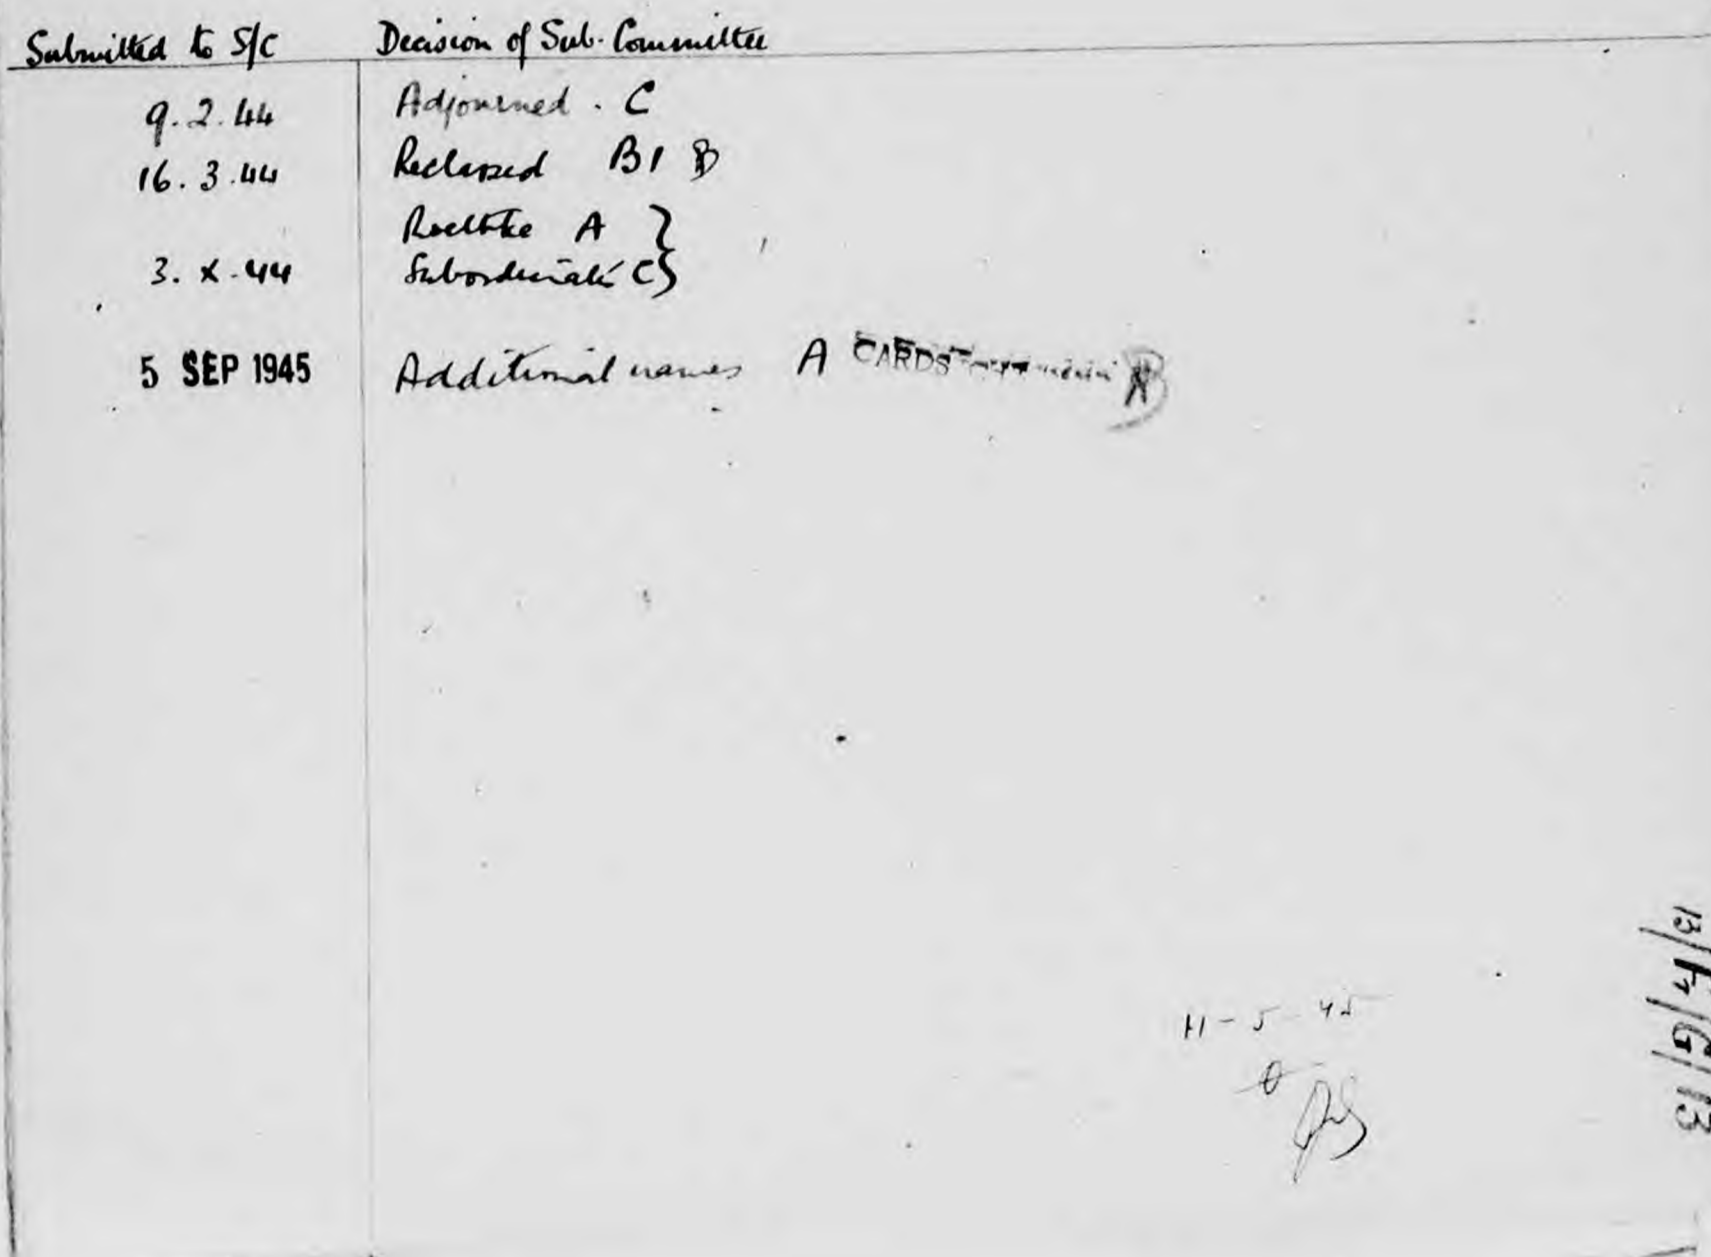 Submitted to S/C Decision of Sub-Committee
9.2.44 Adjourned. C
16.3.44 Reclassed B1
Roethke A }
3.X.44 Subordinate C }
5 SEP 1945 Additional names A CARDS
11-5-45
13/F/G/13